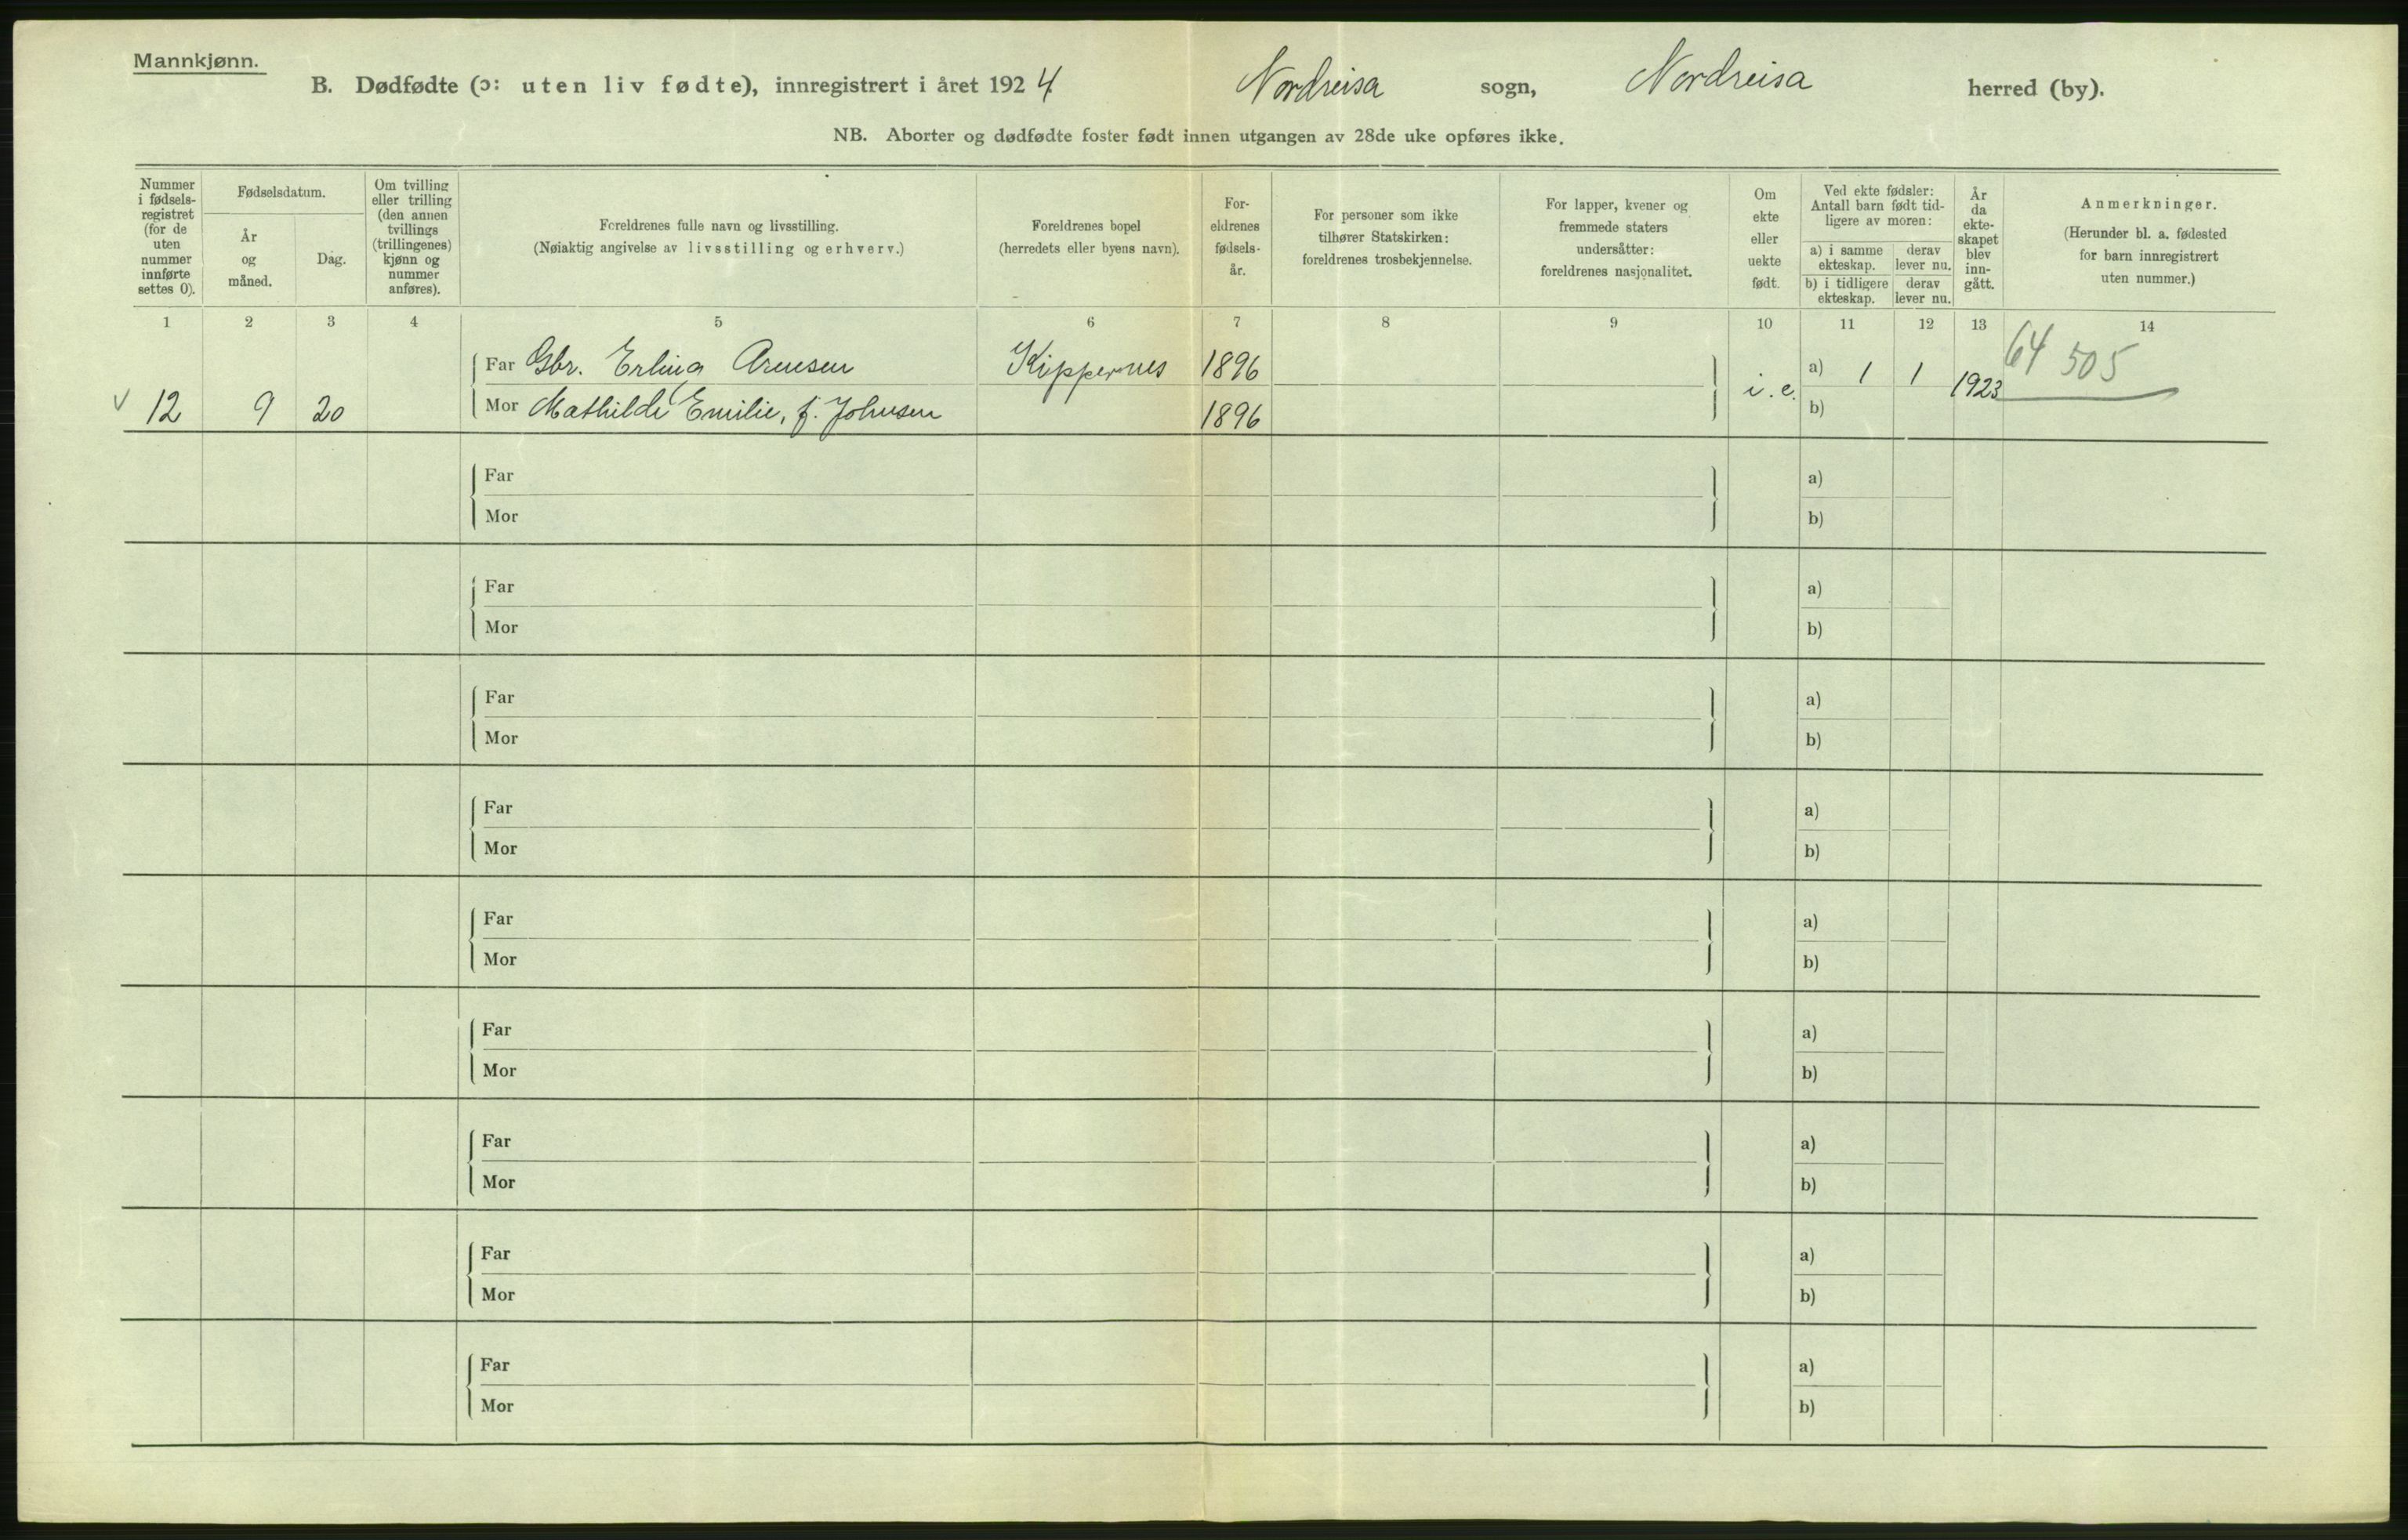 Mannkjønn.
B. Dødfødte (ɔ: uten liv fødte), innregistrert i året 1924 Nordreisa sogn, Nordreisa herred (by).
NB. Aborter og dødfødte foster født innen utgangen av 28de uke opføres ikke.
Nummer i fødsels-registret (for de uten nummer innførte settes 0).
Fødselsdatum.
År og måned.
Dag.
Om tvilling eller trilling (den annen tvillings (trillingenes) kjønn og nummer anføres).
Foreldrenes fulle navn og livsstilling.
(Nøiaktig angivelse av livsstilling og erhverv.)
Foreldrenes bopel
(herredets eller byens navn).
For-eldrenes fødsels-år.
For personer som ikke tilhører Statskirken: foreldrenes trosbekjennelse.
For lapper, kvener og fremmede staters undersåtter: foreldrenes nasjonalitet.
Om ekte eller uekte født.
Ved ekte fødsler: Antall barn født tid-ligere av moren:
a) i samme ekteskap. derav lever nu.
b) i tidligere ekteskap. derav lever nu.
År da ekte-skapet blev inn-gått.
Anmerkninger.
(Herunder bl. a. fødested for barn innregistrert uten nummer.)
1 2 3 4 5 6 7 8 9 10 11 12 13 14
Far Gbr. Erling Arnesen Kippernes 1896 a) 1 1 64 505
✓ 12 9 20 Mor Mathilde Emilie, f. Johnsen 1896 i. e. b) 1923
Far a)
Mor b)
Far a)
Mor b)
Far a)
Mor b)
Far a)
Mor b)
Far a)
Mor b)
Far a)
Mor b)
Far a)
Mor b)
Far a)
Mor b)
Far a)
Mor b)